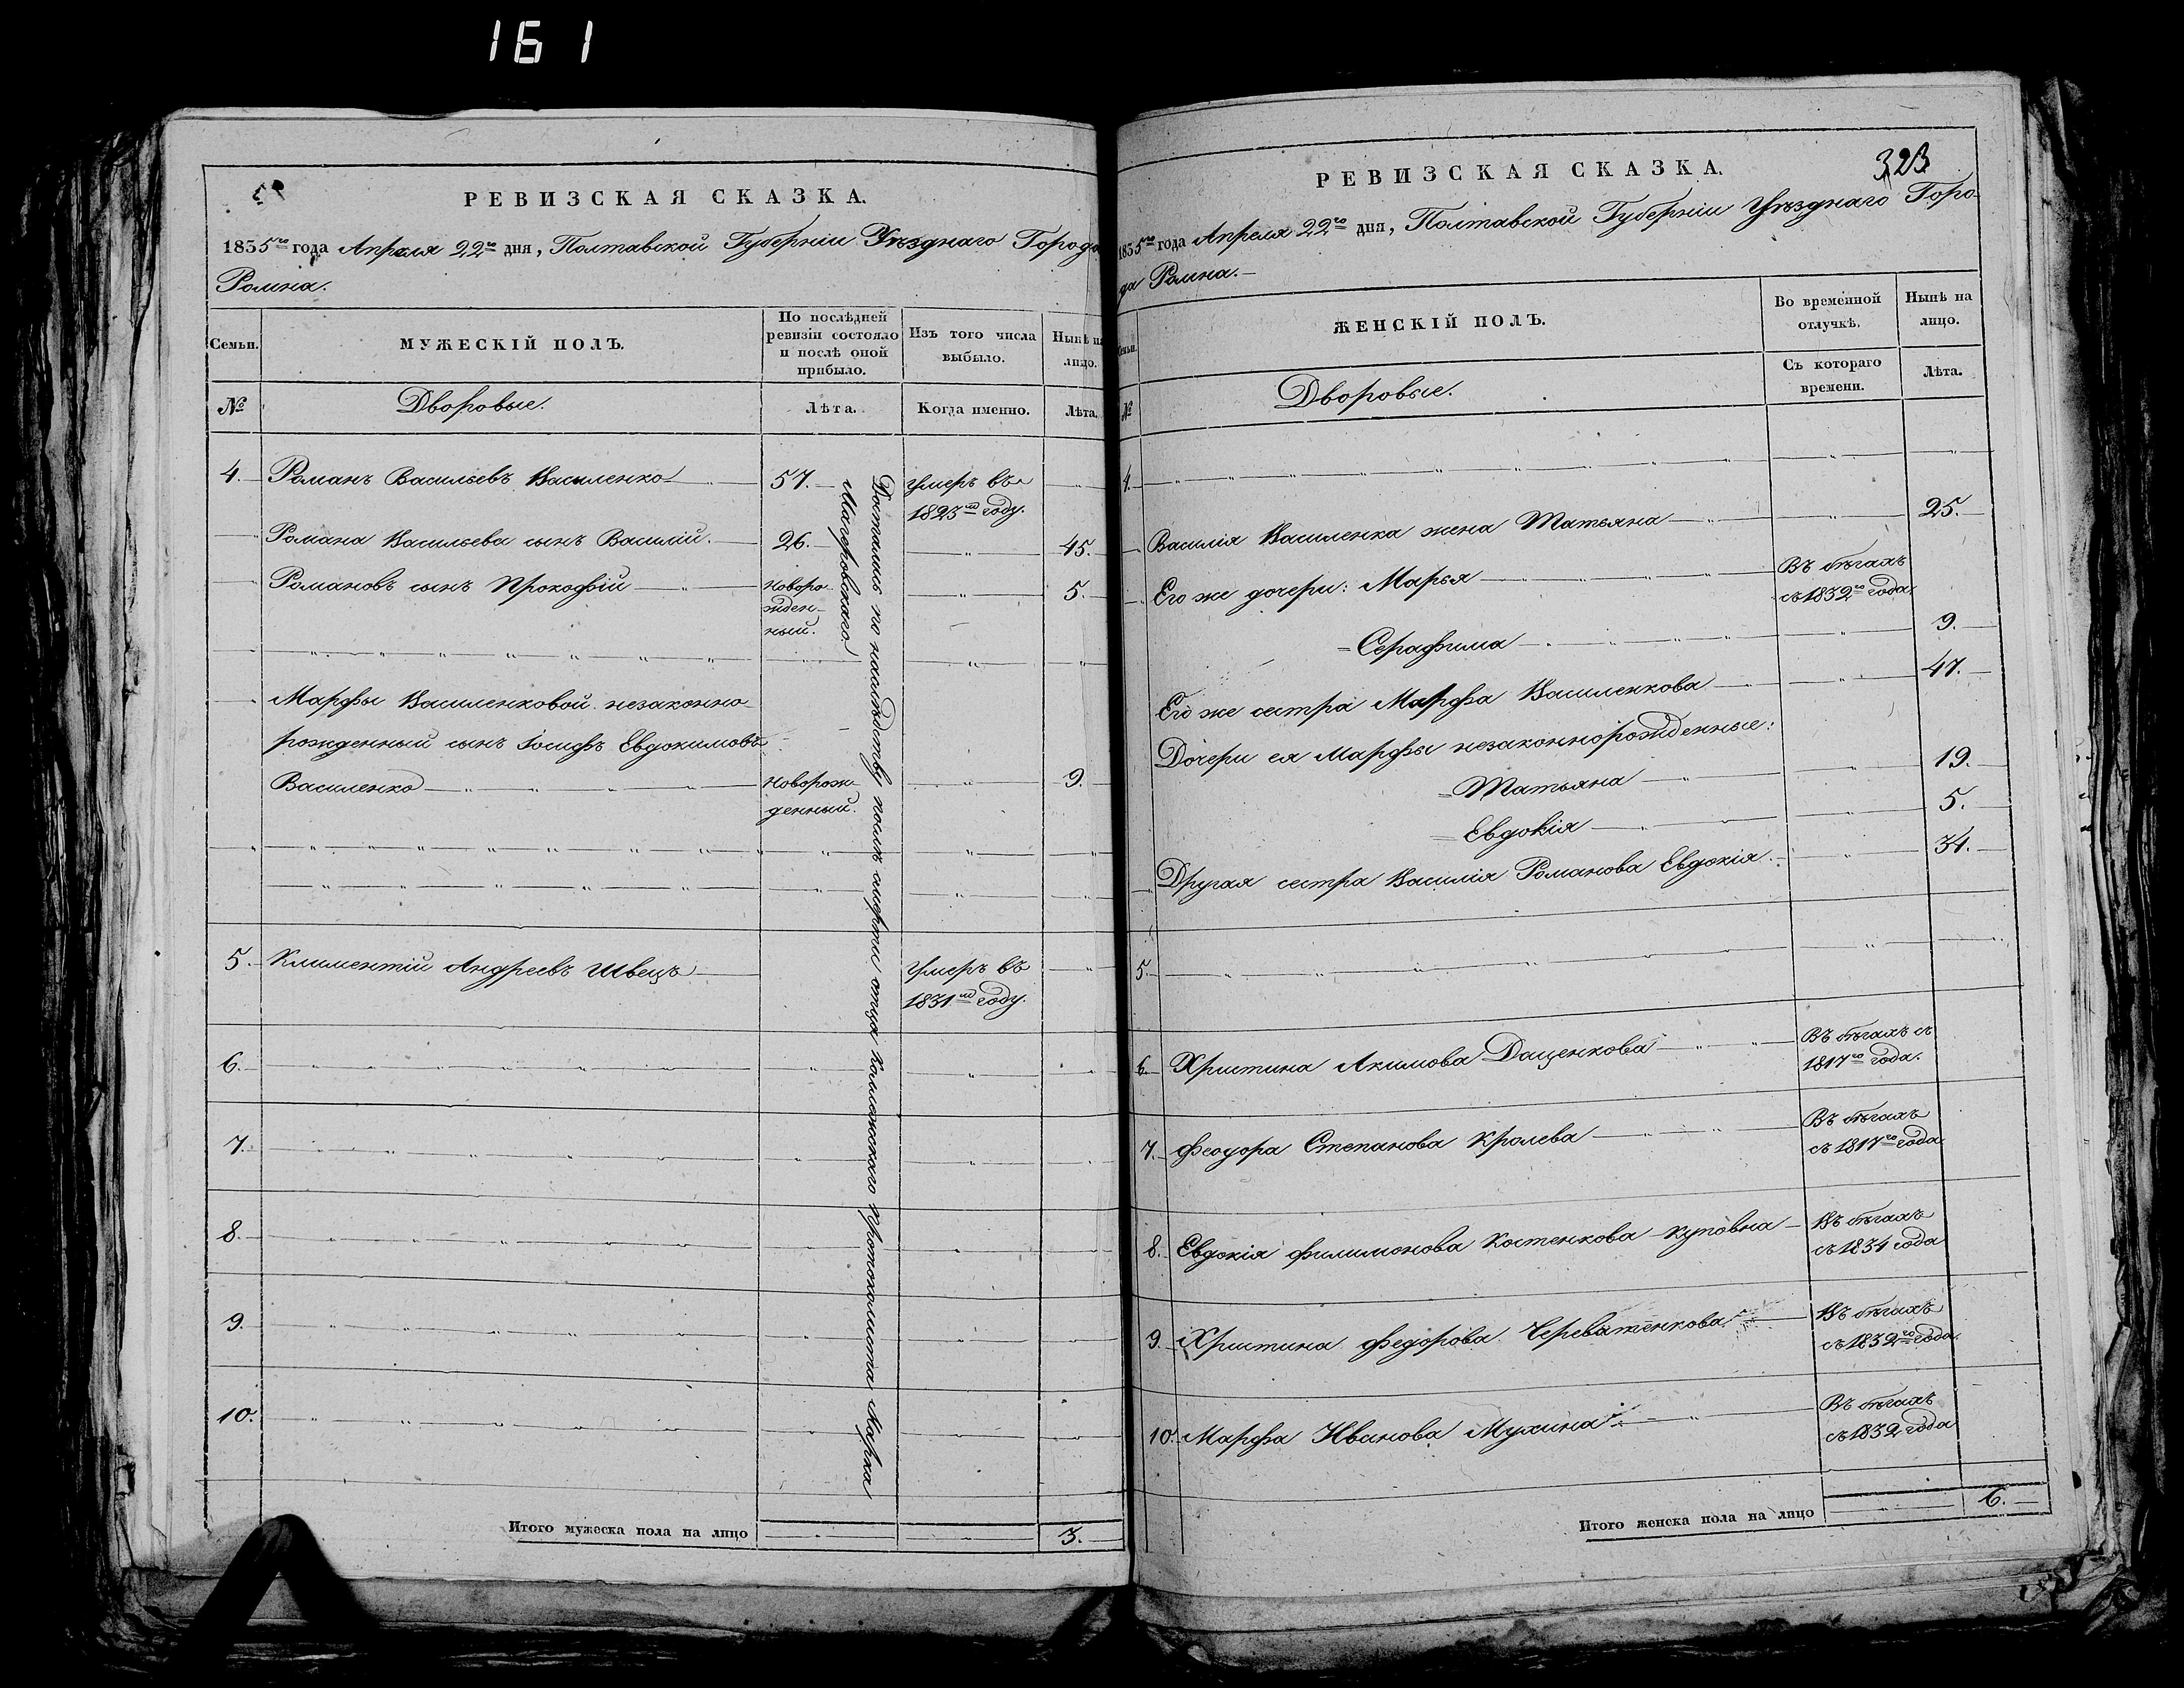 161
РЕВИЗСКАЯ СКАЗКА.
1835го года Апреля 22го дня, Полтавской Губерніи Уѣзднаго Города
Ромна.
Семьи.
МУЖЕСКІЙ ПОЛЪ.
По послѣдней
ревизіи состояло
и послѣ оной
прибыло.
Изъ того числа
выбыло.
Нынѣ на
лицо.
№
Дворовые.
Лѣта.
Когда именно.
Лѣта.
4. Романъ Васильевъ Василенко 57. умеръ въ
1823мъ году.
Романа Васильева сынъ Василій. 26. 45.
Романовъ сынъ Прокофій Новоро- 5.
жден-
ный.
Марфы Василенковой незаконно
рожденный сынъ Іосифъ Евдокимовъ
Василенко Новорож- 9.
денный.
5. Климентій Андреевъ Швецъ умеръ въ
1831мъ году.
6.
7.
8.
9.
10.
Достались по наслѣдству послѣ смерти отца Коллежскаго Протоколиста Марка
Магеровскаго
Итого мужеска пола на лицо 3.
РЕВИЗСКАЯ СКАЗКА.
323
1835го года Апреля 22го дня, Полтавской Губерніи Уѣзднаго Горо-
да Ромна.
Семьи.
ЖЕНСКІЙ ПОЛЪ.
Во временной
отлучкѣ.
Нынѣ на
лицо.
№
Дворовые.
Съ котораго
времени.
Лѣта.
4.
Василія Василенка жена Татьяна 25.
Его же дочери: Марья Въ бѣгахъ
съ 1832го года.
Серафима 9.
Его же сестра Марфа Василенкова 47.
Дочери ея Марфы незаконнорожденные:
Татьяна 19.
Евдокія 5.
Другая сестра Василія Романова Евдокія. 34.
5.
6. Христина Акимова Даценкова Въ бѣгахъ съ
1817го года.
7. Феодора Степанова Кролева Въ бѣгахъ
съ 1817го года
8. Евдокія Филимонова Костенкова куповна Въ бѣгахъ
съ 1834 года
9. Христина Федорова Череватенкова Въ бѣгахъ
съ 1832го года.
10. Марфа Иванова Мухина Въ бѣгахъ
съ 1832 года
Итого женска пола на лицо 6.